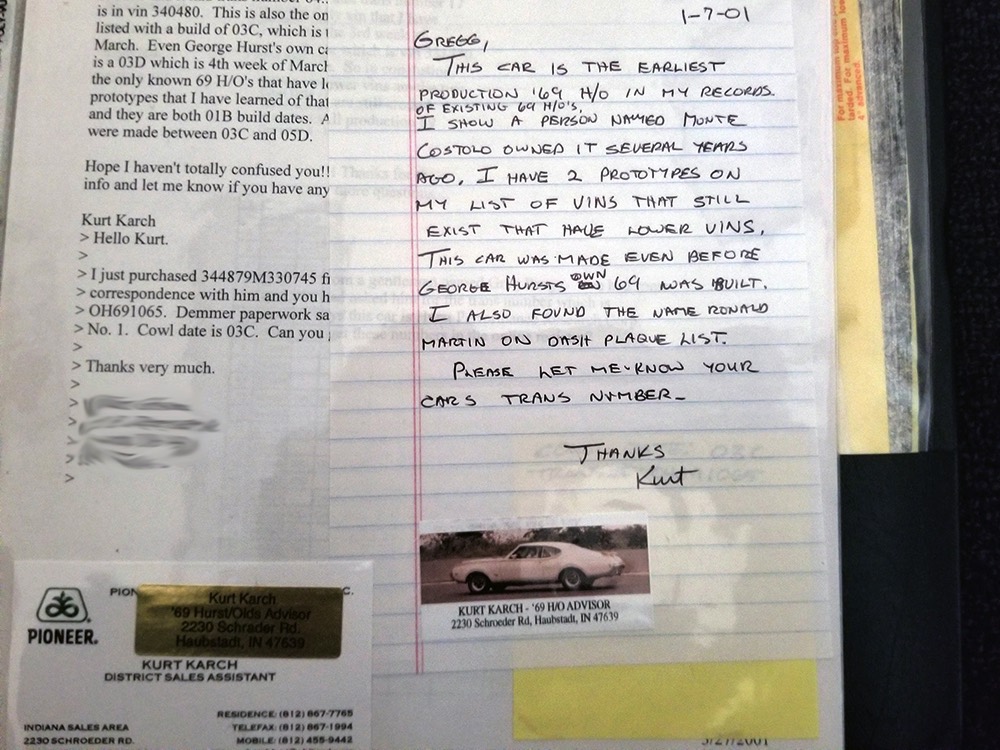 is in vin 340480. This is also the on
listed with a build of 03C, which is t
March. Even George Hurst's own ca
is a 03D which is 4th week of March
the only known 69 H/O's that have lo
prototypes that I have learned of that
and they are both 01B build dates. A
were made between 03C and 05D.
Hope I haven't totally confused you!!
info and let me know if you have any
Kurt Karch
> Hello Kurt.
>
> I just purchased 344879M330745 fr
> correspondence with him and you h
> OH691065. Demmer paperwork sa
> No. 1. Cowl date is 03C. Can you
>
> Thanks very much.
>
>
>
>
>
>
1-7-01
GREGG,
THIS CAR IS THE EARLIEST
PRODUCTION '69 H/O IN MY RECORDS.
OF EXISTING 69 H/O'S,
I SHOW A PERSON NAMED MONTE
COSTOLO OWNED IT SEVERAL YEARS
AGO. I HAVE 2 PROTOTYPES ON
MY LIST OF VINS THAT STILL
EXIST THAT HAVE LOWER VINS.
THIS CAR WAS MADE EVEN BEFORE
GEORGE HURSTS OWN 69 WAS BUILT.
I ALSO FOUND THE NAME RONALD
MARTIN ON DASH PLAQUE LIST.
PLEASE LET ME KNOW YOUR
CARS TRANS NUMBER_
THANKS
Kurt
KURT KARCH - '69 H/O ADVISOR
2230 Schroeder Rd, Haubstadt, IN 47639
PION C.
Kurt Karch
'69 Hurst/Olds Advisor
2230 Schrader Rd.
Haubstadt, IN 47639
PIONEER.
KURT KARCH
DISTRICT SALES ASSISTANT
INDIANA SALES AREA
2230 SCHROEDER RD.
RESIDENCE: (812) 867-7765
TELEFAX: (812) 867-1994
MOBILE: (812) 455-9442
3/27/2001
For maximum
tarded. For maximum
4° advanced.